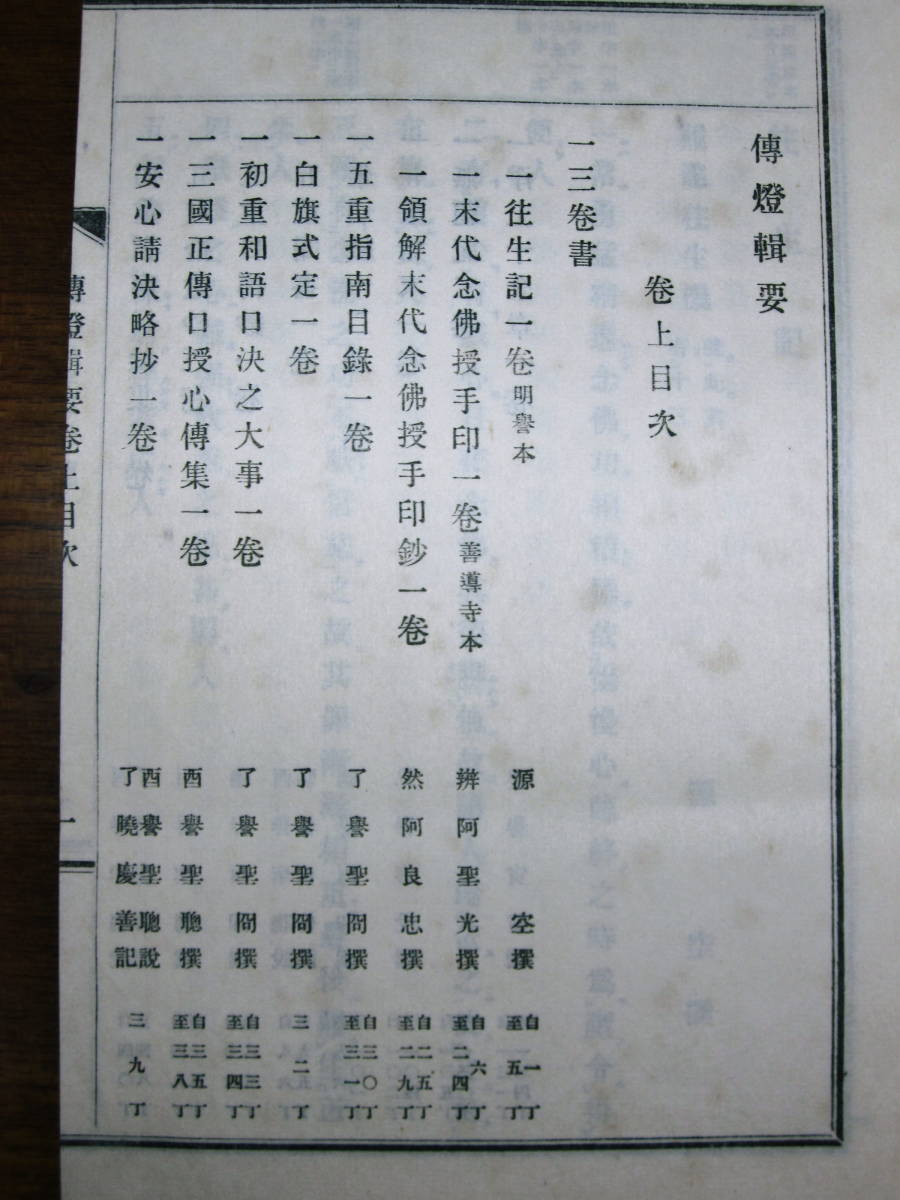 傳燈輯要
卷上目次
一三卷書
一往生記一卷 明譽本 源空撰 自一丁至五丁
一末代念佛授手印一卷 善導寺本 辨阿聖光撰 自六丁至二四丁
一領解末代念佛授手印鈔一卷 然阿良忠撰 自二五丁至二九丁
一五重指南目錄一卷 了譽聖冏撰 自三〇丁至三一丁
一白旗式定一卷 了譽聖冏撰 三二丁
一初重和語口決之大事一卷 了譽聖冏撰 自三三丁至三四丁
一三國正傳口授心傳集一卷 酉譽聖聰撰 自三五丁至三八丁
一安心請決略抄一卷 酉譽聖聰說 了曉慶善記 三九丁
傳燈輯要卷上目次 一